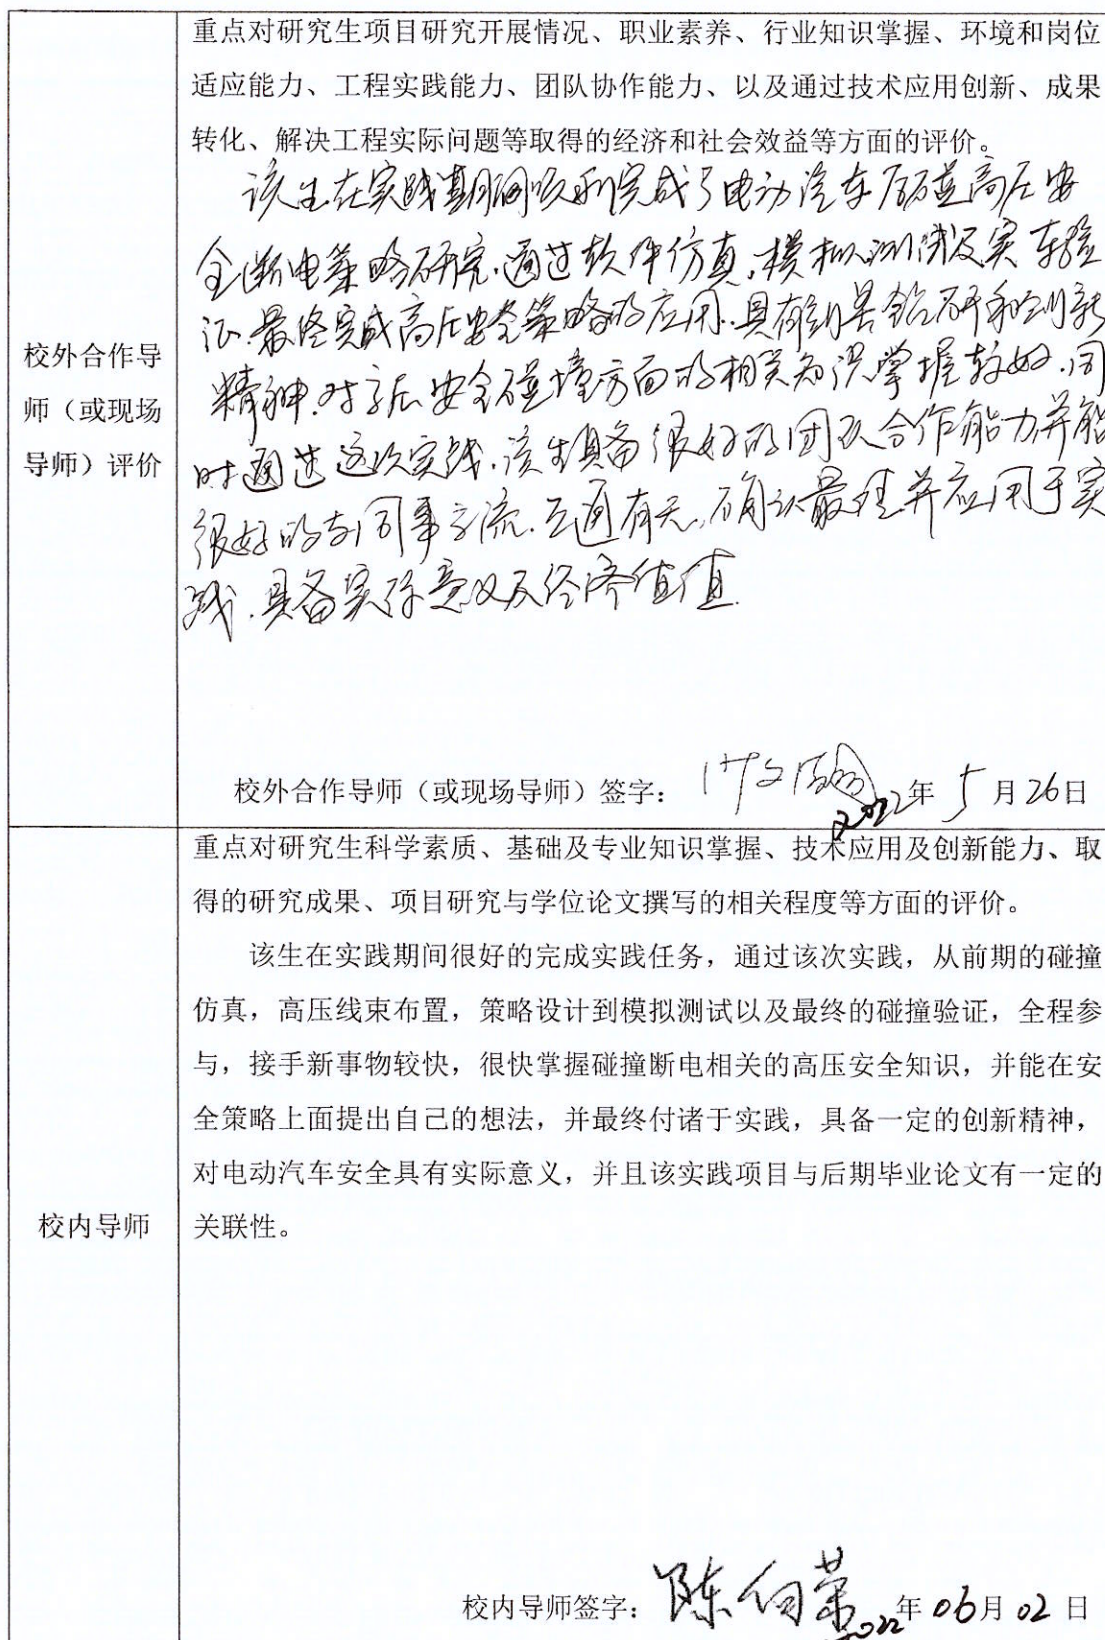 重点对研究生项目研究开展情况、职业素养、行业知识掌握、环境和岗位
适应能力、工程实践能力、团队协作能力、以及通过技术应用创新、成果
转化、解决工程实际问题等取得的经济和社会效益等方面的评价。
该生在实践期间顺利完成了电动汽车碰撞高压安
全断电策略研究.通过软件仿真,模拟测试及实车验
证.最终完成高压安全策略的应用.具有刻苦钻研和创新
精神.对高压安全碰撞方面的相关知识掌握较好.同
时通过这次实践.该生具备很好的团队合作能力并能
很好的与同事交流.互通有无,确认最佳并应用于实
践.具备实际意义及经济价值
校外合作导
师（或现场
导师）评价
校外合作导师（或现场导师）签字： 2022年 5 月 26日
重点对研究生科学素质、基础及专业知识掌握、技术应用及创新能力、取
得的研究成果、项目研究与学位论文撰写的相关程度等方面的评价。
该生在实践期间很好的完成实践任务，通过该次实践，从前期的碰撞
仿真，高压线束布置，策略设计到模拟测试以及最终的碰撞验证，全程参
与，接手新事物较快，很快掌握碰撞断电相关的高压安全知识，并能在安
全策略上面提出自己的想法，并最终付诸于实践，具备一定的创新精神，
对电动汽车安全具有实际意义，并且该实践项目与后期毕业论文有一定的
关联性。
校内导师
校内导师签字：陈向荣 2022年 06月 02 日